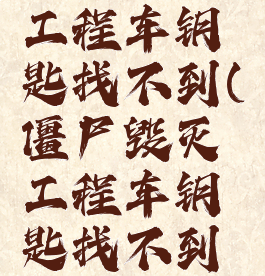 工程车钥
匙找不到(
僵尸毁灭
工程车钥
匙找不到